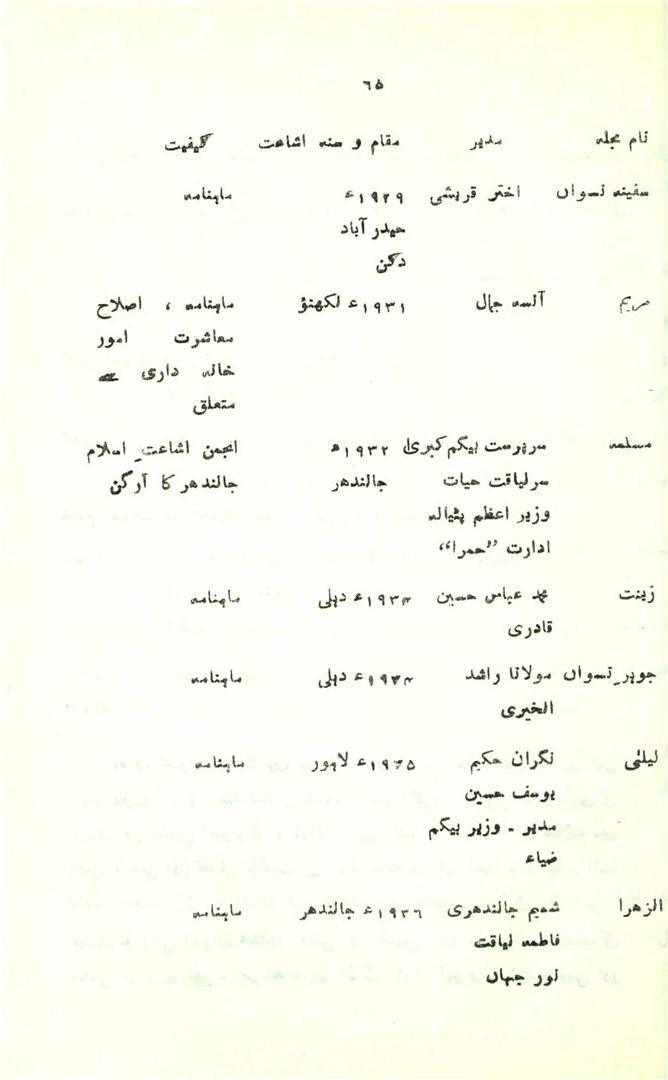 ٦٥
نام مجلہ مدیر مقام و سنہ اشاعت کیفیت
سفینہ نسواں اختر قریشی ۱۹۲۹ء ماہنامہ
حیدر آباد
دکن
مریم آنسہ جمال ۱۹۳۱ء لکھنؤ ماہنامہ ، اصلاح
معاشرت امور
خانہ داری سے
متعلق
مسلمہ سرپرست بیگم کبریٰ ۱۹۳۲ء انجمن اشاعت اسلام
سرلیاقت حیات جالندھر جالندھر کا آرگن
وزیر اعظم پٹیالہ
ادارت ”حمرا“
زینت محمد عباس حسین ۱۹۳۴ء دہلی ماہنامہ
قادری
جوہر نسواں مولانا راشد ۱۹۳۴ء دہلی ماہنامہ
الخیری
لیلیٰ نگران حکیم ۱۹۳۵ء لاہور ماہنامہ
یوسف حسین
مدیر ۔ وزیر بیگم
ضیاء
الزهرا شمیم جالندھری ۱۹۳٦ء جالندھر ماہنامہ
فاطمہ لیاقت
نور جہاں